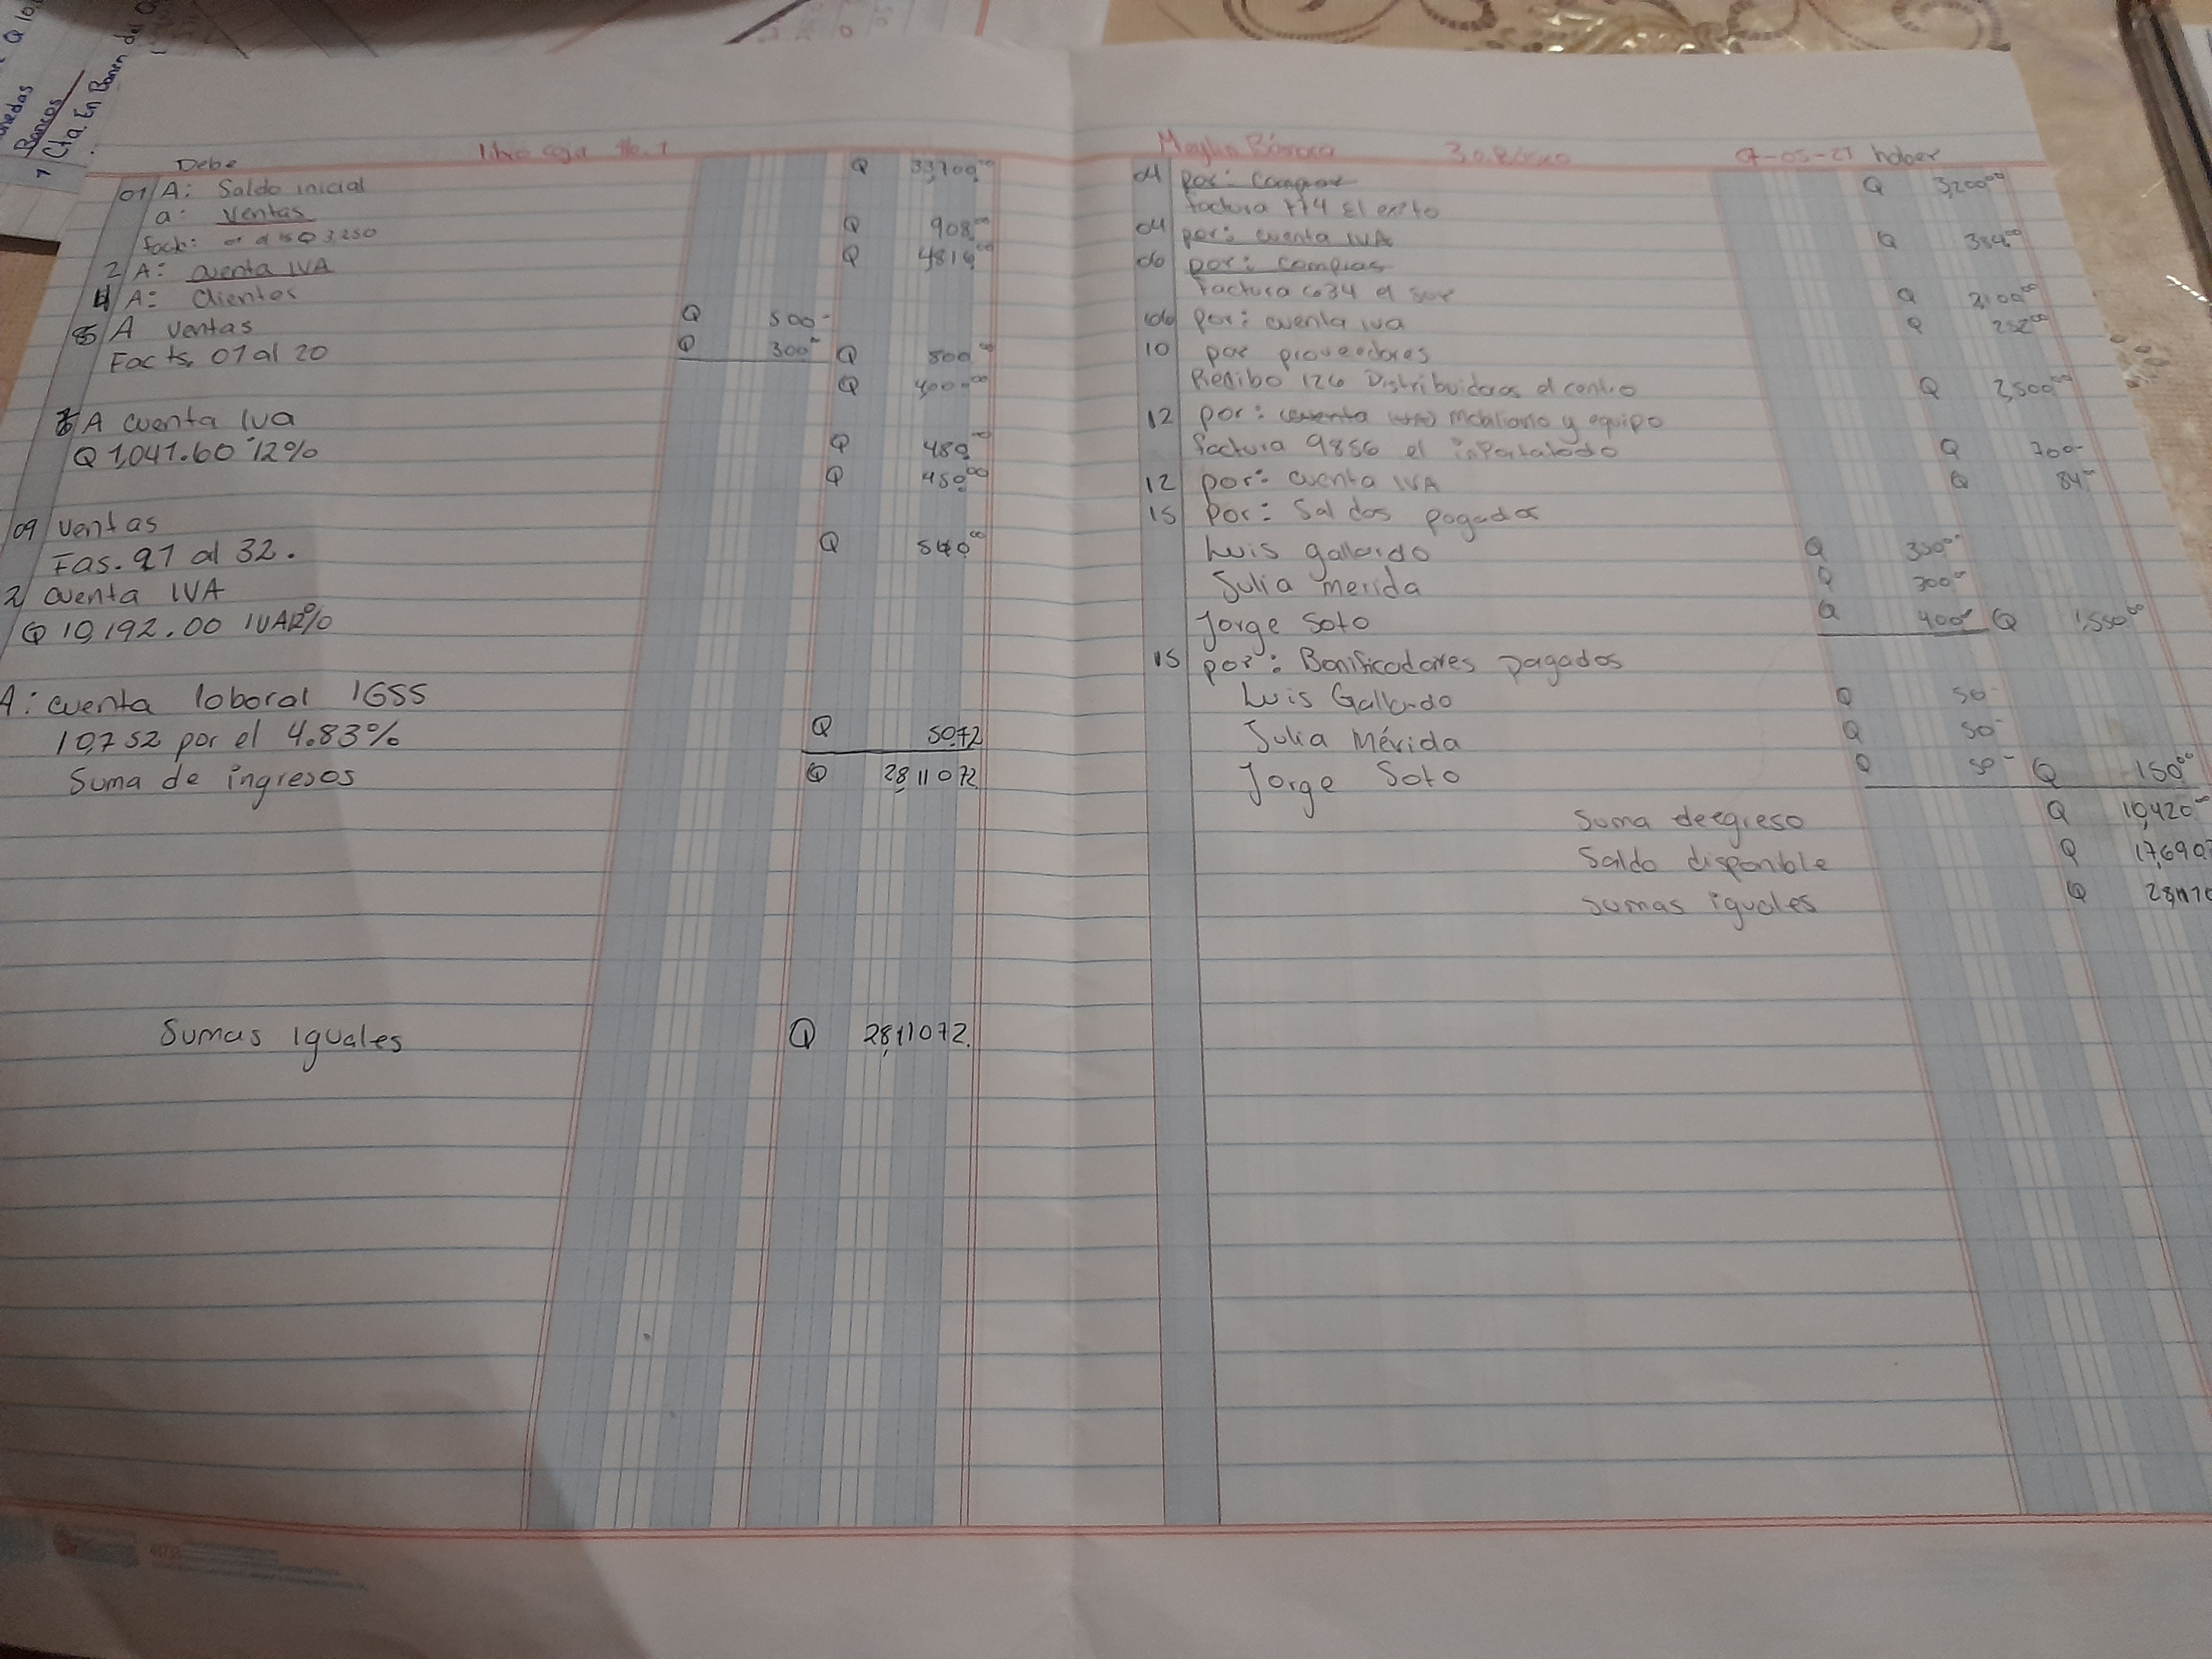 Q 10,
nedas
Bancos
1 Cta. En Banco del Q
Debe
Libro caja No. 1
01 A: Saldo inicial Q 33,700.00
a: ventas
fact: al Q 3,250 Q 908.00
2 A: cuenta IVA Q 4,816.00
4 A: Clientes
A ventas Q 500-
Facts, 01 al 20 Q 300- Q 800.00
Q 400.00
A cuenta iva
Q 1,041.60 12% Q 480
Q 450.00
09 ventas
Fas. 21 al 32. Q 540.00
2 cuenta IVA
Q 10,192.00 IVA12%
A: cuenta laboral IGSS
10,752 por el 4.83% Q 50.72
Suma de ingresos Q 28,11072
Sumas iguales Q 28,11072.
Maylin 3o. Básico 7-05-21 haber
04 por: compras Q 3,200.00
factura 774 El exito
04 por: cuenta IVA Q 384.00
06 por: compras
factura 634 el sur Q 2,100.00
06 por: cuenta iva Q 252.00
10 por proveedores
Recibo 126 Distribuidoras el centro Q 2,500.00
12 por: cuenta mobiliario y equipo
factura 9856 el inPortatodo Q 700-
12 por: cuenta IVA Q 84.-
15 por: Saldos pagados
Luis gallardo Q 350.00
Julia merida Q 300-
Jorge Soto Q 400- Q 1,550.00
15 por: Bonificadores pagados
Luis Gallardo Q 50-
Julia Mérida Q 50-
Jorge Soto Q 50- Q 150.00
Suma deegreso Q 10,420-
Saldo disponible Q 17,690.7
sumas iguales Q 28,11